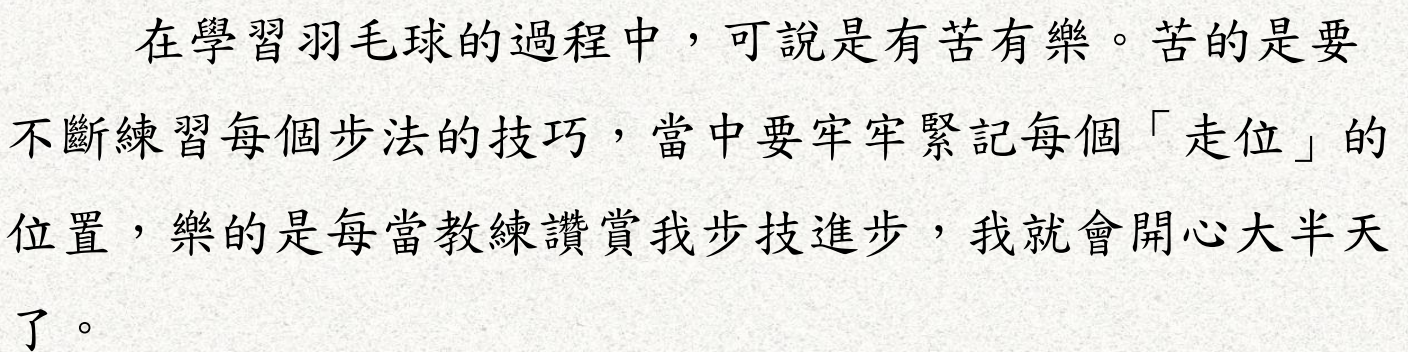 在學習羽毛球的過程中，可說是有苦有樂。苦的是要
不斷練習每個步法的技巧，當中要牢牢緊記每個「走位」的
位置，樂的是每當教練讚賞我步技進步，我就會開心大半天
了。